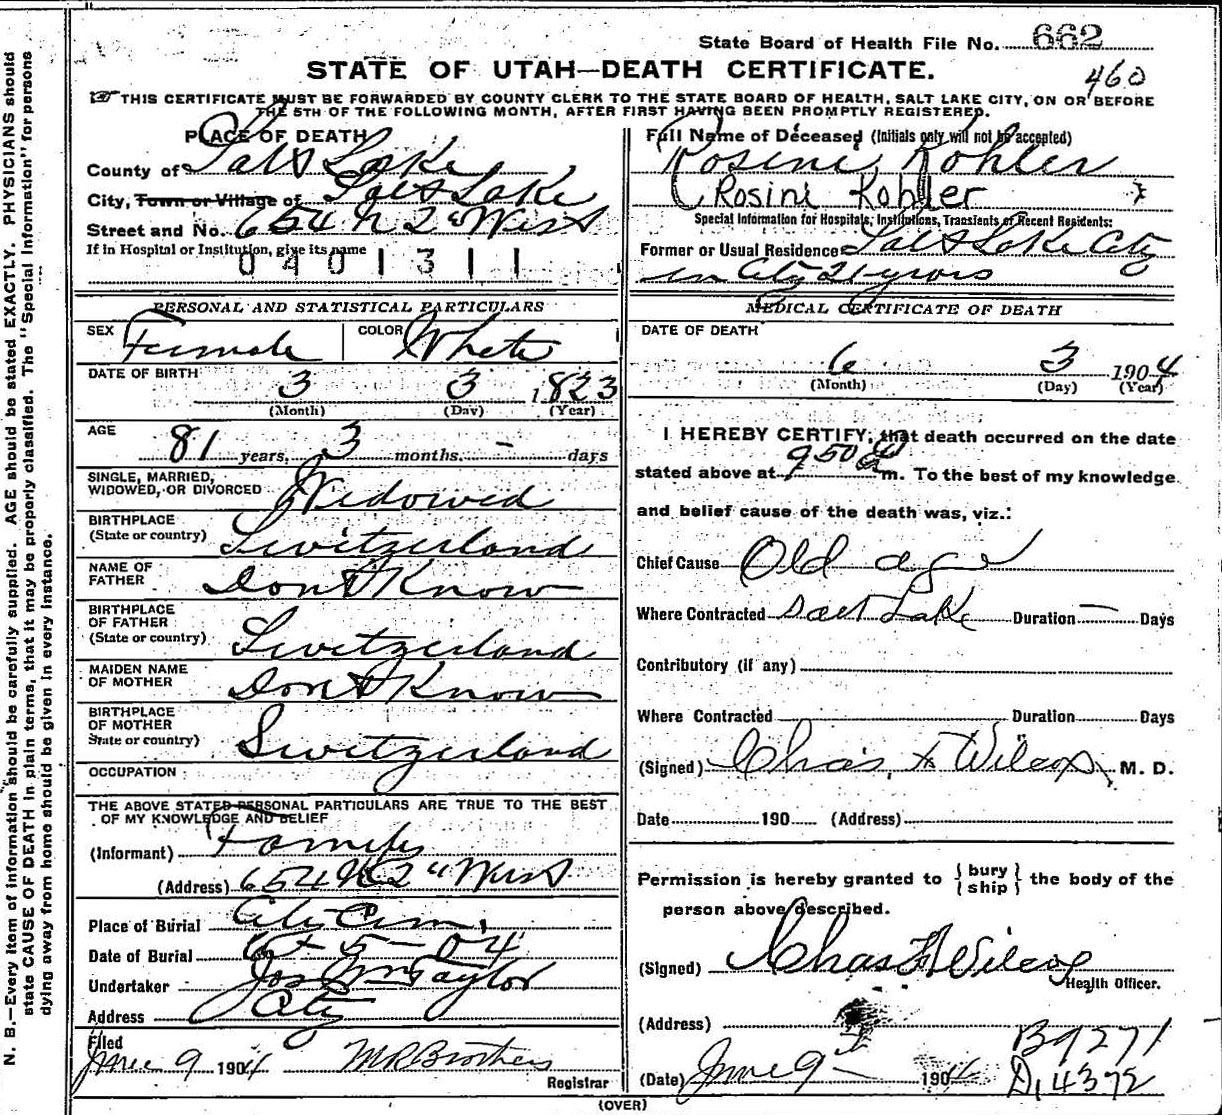 State Board of Health File No. 662
STATE OF UTAH—DEATH CERTIFICATE.
460
THIS CERTIFICATE MUST BE FORWARDED BY COUNTY CLERK TO THE STATE BOARD OF HEALTH, SALT LAKE CITY, ON OR BEFORE
THE 5TH OF THE FOLLOWING MONTH, AFTER FIRST HAVING BEEN PROMPTLY REGISTERED.
PLACE OF DEATH
County of Salt Lake
City, Town or Village of Salt Lake
Street and No. 654 N 2" West
If in Hospital or Institution, give its name
0401311
Full Name of Deceased (Initials only will not be accepted)
Rosini Kohler
(Rosini Kohler
Special Information for Hospitals, Institutions, Transients or Recent Residents:
Former or Usual Residence Salt Lake City
in City 21 years
PERSONAL AND STATISTICAL PARTICULARS
SEX Female COLOR White
DATE OF BIRTH
3 3 1823
(Month) (Day) (Year)
AGE
81 years, 3 months. - days
SINGLE, MARRIED,
WIDOWED, OR DIVORCED Widowed
BIRTHPLACE
(State or country) Switzerland
NAME OF
FATHER Dont Know
BIRTHPLACE
OF FATHER
(State or country) Switzerland
MAIDEN NAME
OF MOTHER Dont Know
BIRTHPLACE
OF MOTHER
State or country) Switzerland
OCCUPATION
THE ABOVE STATED PERSONAL PARTICULARS ARE TRUE TO THE BEST
OF MY KNOWLEDGE AND BELIEF
(Informant) Family
(Address) 654 N 2" West
Place of Burial City Cem.
Date of Burial 6-5-04
Undertaker Jos Wm Taylor
Address City
Filed
June 9 1904 M R Brothers
Registrar
MEDICAL CERTIFICATE OF DEATH
DATE OF DEATH
6 3 1904
(Month) (Day) (Year)
I HEREBY CERTIFY, that death occurred on the date
stated above at 950 m. To the best of my knowledge
and belief cause of the death was, viz.:
Chief Cause Old age
Where Contracted Salt Lake Duration — Days
Contributory (if any)
Where Contracted Duration Days
(Signed) Chas. F Wilcox, M. D.
Date 190 (Address)
Permission is hereby granted to { bury
ship } the body of the
person above described.
(Signed) Chas F Wilcox
Health Officer.
(Address)
B9271
(Date) June 9 1904 D,4372
(OVER)
N. B.—Every item of information should be carefully supplied. AGE should be stated EXACTLY. PHYSICIANS should
state CAUSE OF DEATH in plain terms, that it may be properly classified. The "Special Information" for persons
dying away from home should be given in every instance.